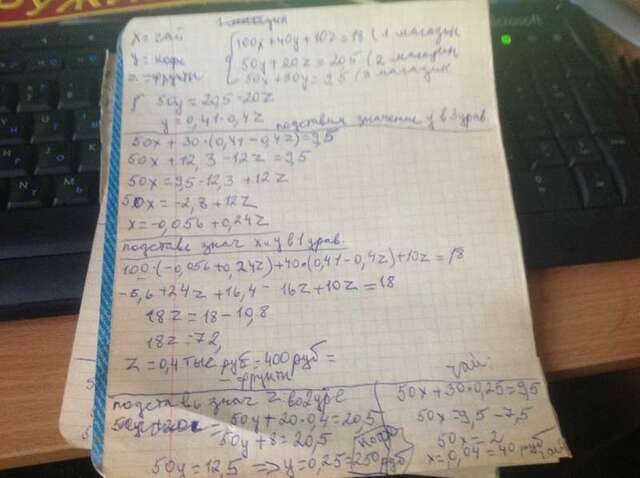 1 магазин
x = чай
y = кофе
z = фрукты
100x + 40y + 10z = 18 (1 магазин
50y + 20z = 20,5 (2 магазин
50x + 30y = 9,5 (3 магазин
50y = 20,5 - 20z
y = 0,41 - 0,4z
подставим значение y в 3 урав.
50x + 30·(0,41 - 0,4z) = 9,5
50x + 12,3 - 12z = 9,5
50x = 9,5 - 12,3 + 12z
50x = -2,8 + 12z
x = -0,056 + 0,24z
подставь знач x и y в 1 урав.
100·(-0,056 + 0,24z) + 40·(0,41 - 0,4z) + 10z = 18
-5,6 + 24z + 16,4 - 16z + 10z = 18
18z = 18 - 10,8
18z = 7,2,
z = 0,4 тыс руб = 400 руб =
- фрукты
подставь знач z во 2 уре
50y + 20·0,4 = 20,5
50y + 8 = 20,5
50y = 12,5 => y = 0,25 = 250 руб
кофе
чай:
50x + 30·0,25 = 9,5
50x = 9,5 - 7,5
50x = 2
x = 0,04 = 40 руб
чай